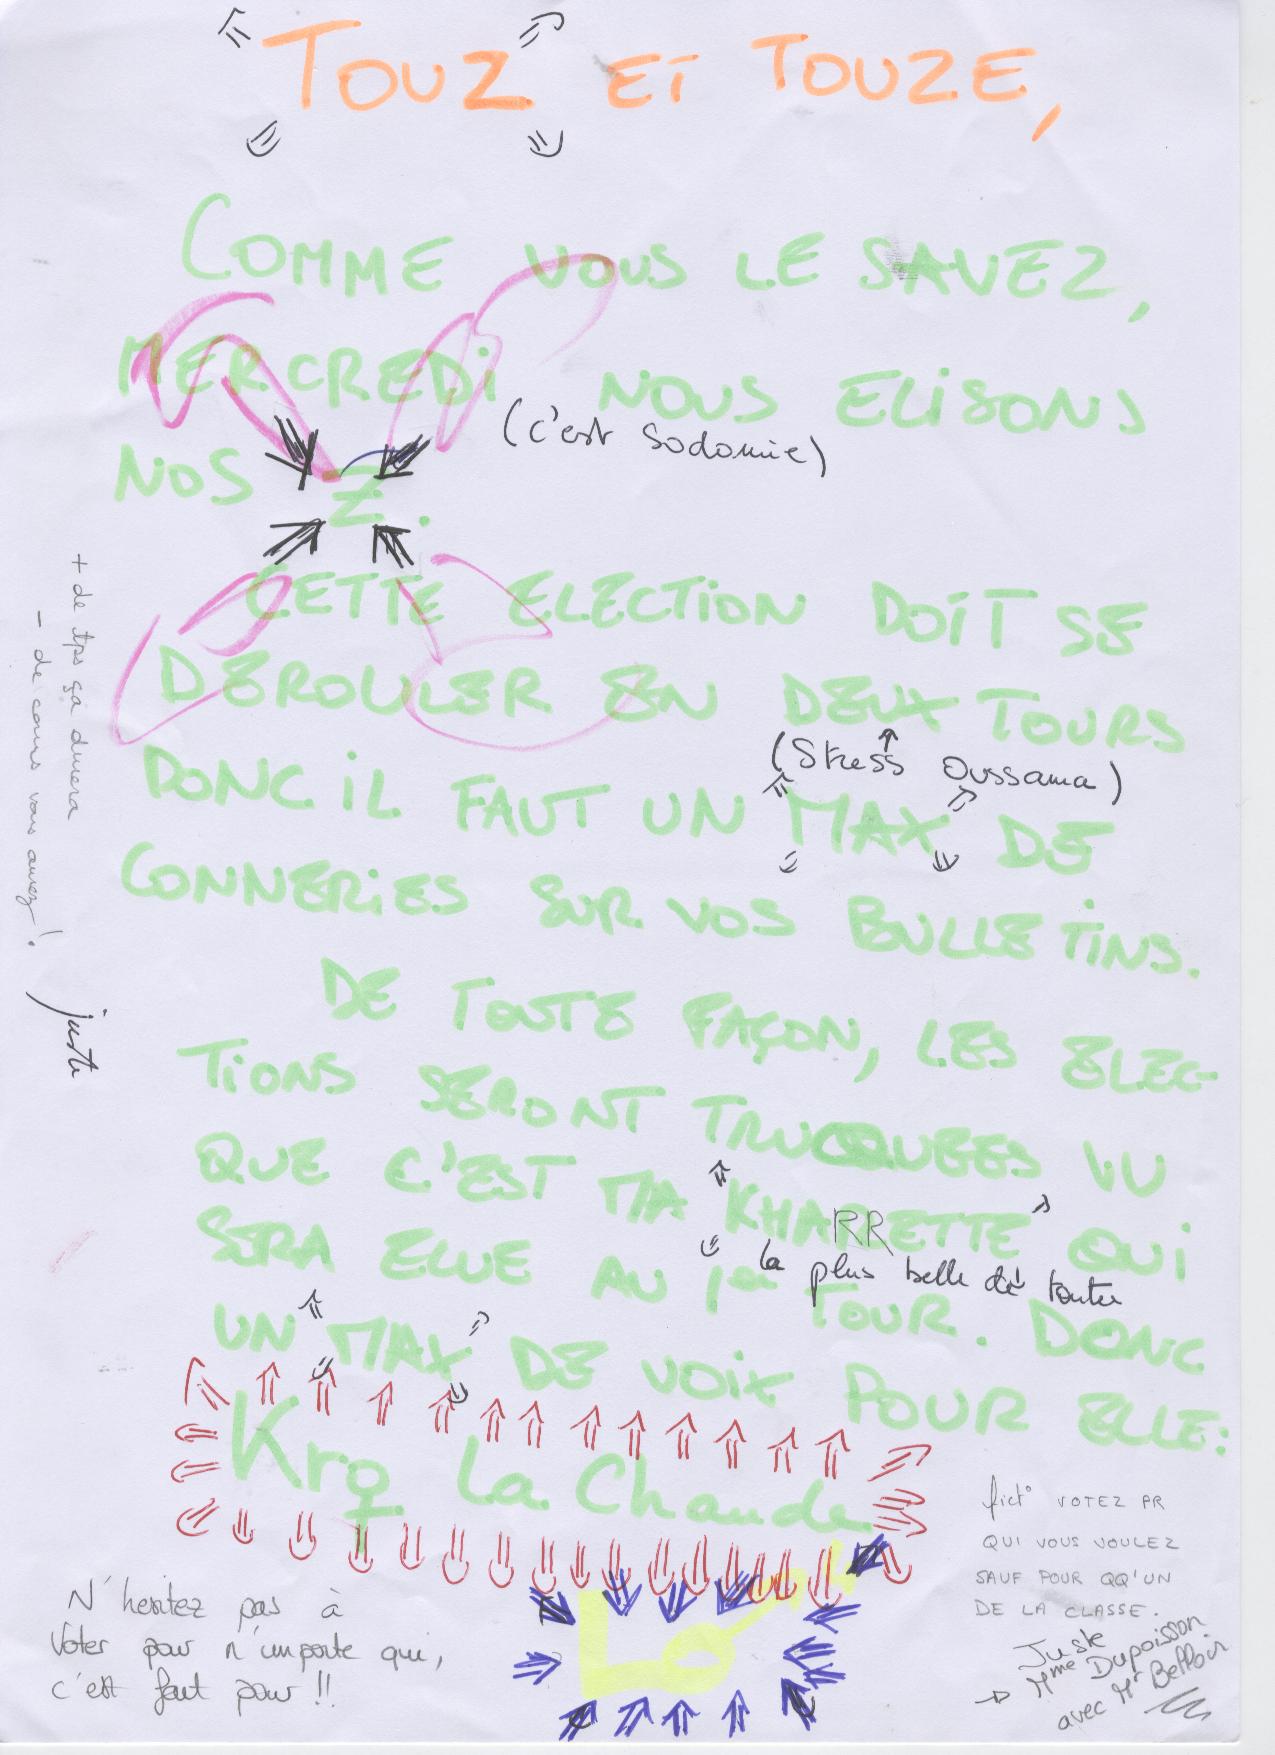 TOUZ ET TOUZE,
COMME VOUS LE SAVEZ,
MERCREDi NOUS ELiSONS
(c'est Sodomie)
NOS Z.
CETTE ELECTiON DOiT SE
DEROULER EN DEUX TOURS
(Stress Oussama)
DONC iL FAUT UN MAX DE
CONNERiES SUR VOS BULLETiNS.
DE TOUTE FAÇON, LES ELEC-
TiONS SERONT TRUCQUEES VU
QUE C'EST MA KHARRETTE QUi
la plus belle de toutes
SERA ELUE AU 1er TOUR. DONC
UN MAX DE VOiX POUR ELLE:
Kro La Chaude
+ de tps ça durera
- de cours vous aurez !
juste
N'hesitez pas à
Voter pour n'importe qui,
c'est fait pour !!
Lo
fict° VOTEZ PR
QUI VOUS VOULEZ
SAUF POUR QQ'UN
DE LA CLASSE.
Juste
Mme Dupoisson
avec Mr Belloir